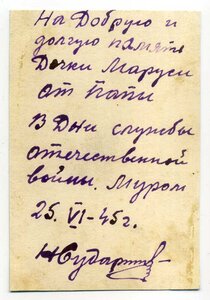 На Добрую и
долгую память
Дочки Маруси
от папи
В Дни службы
отечественной
войны. Муром
25 VI-45 г.